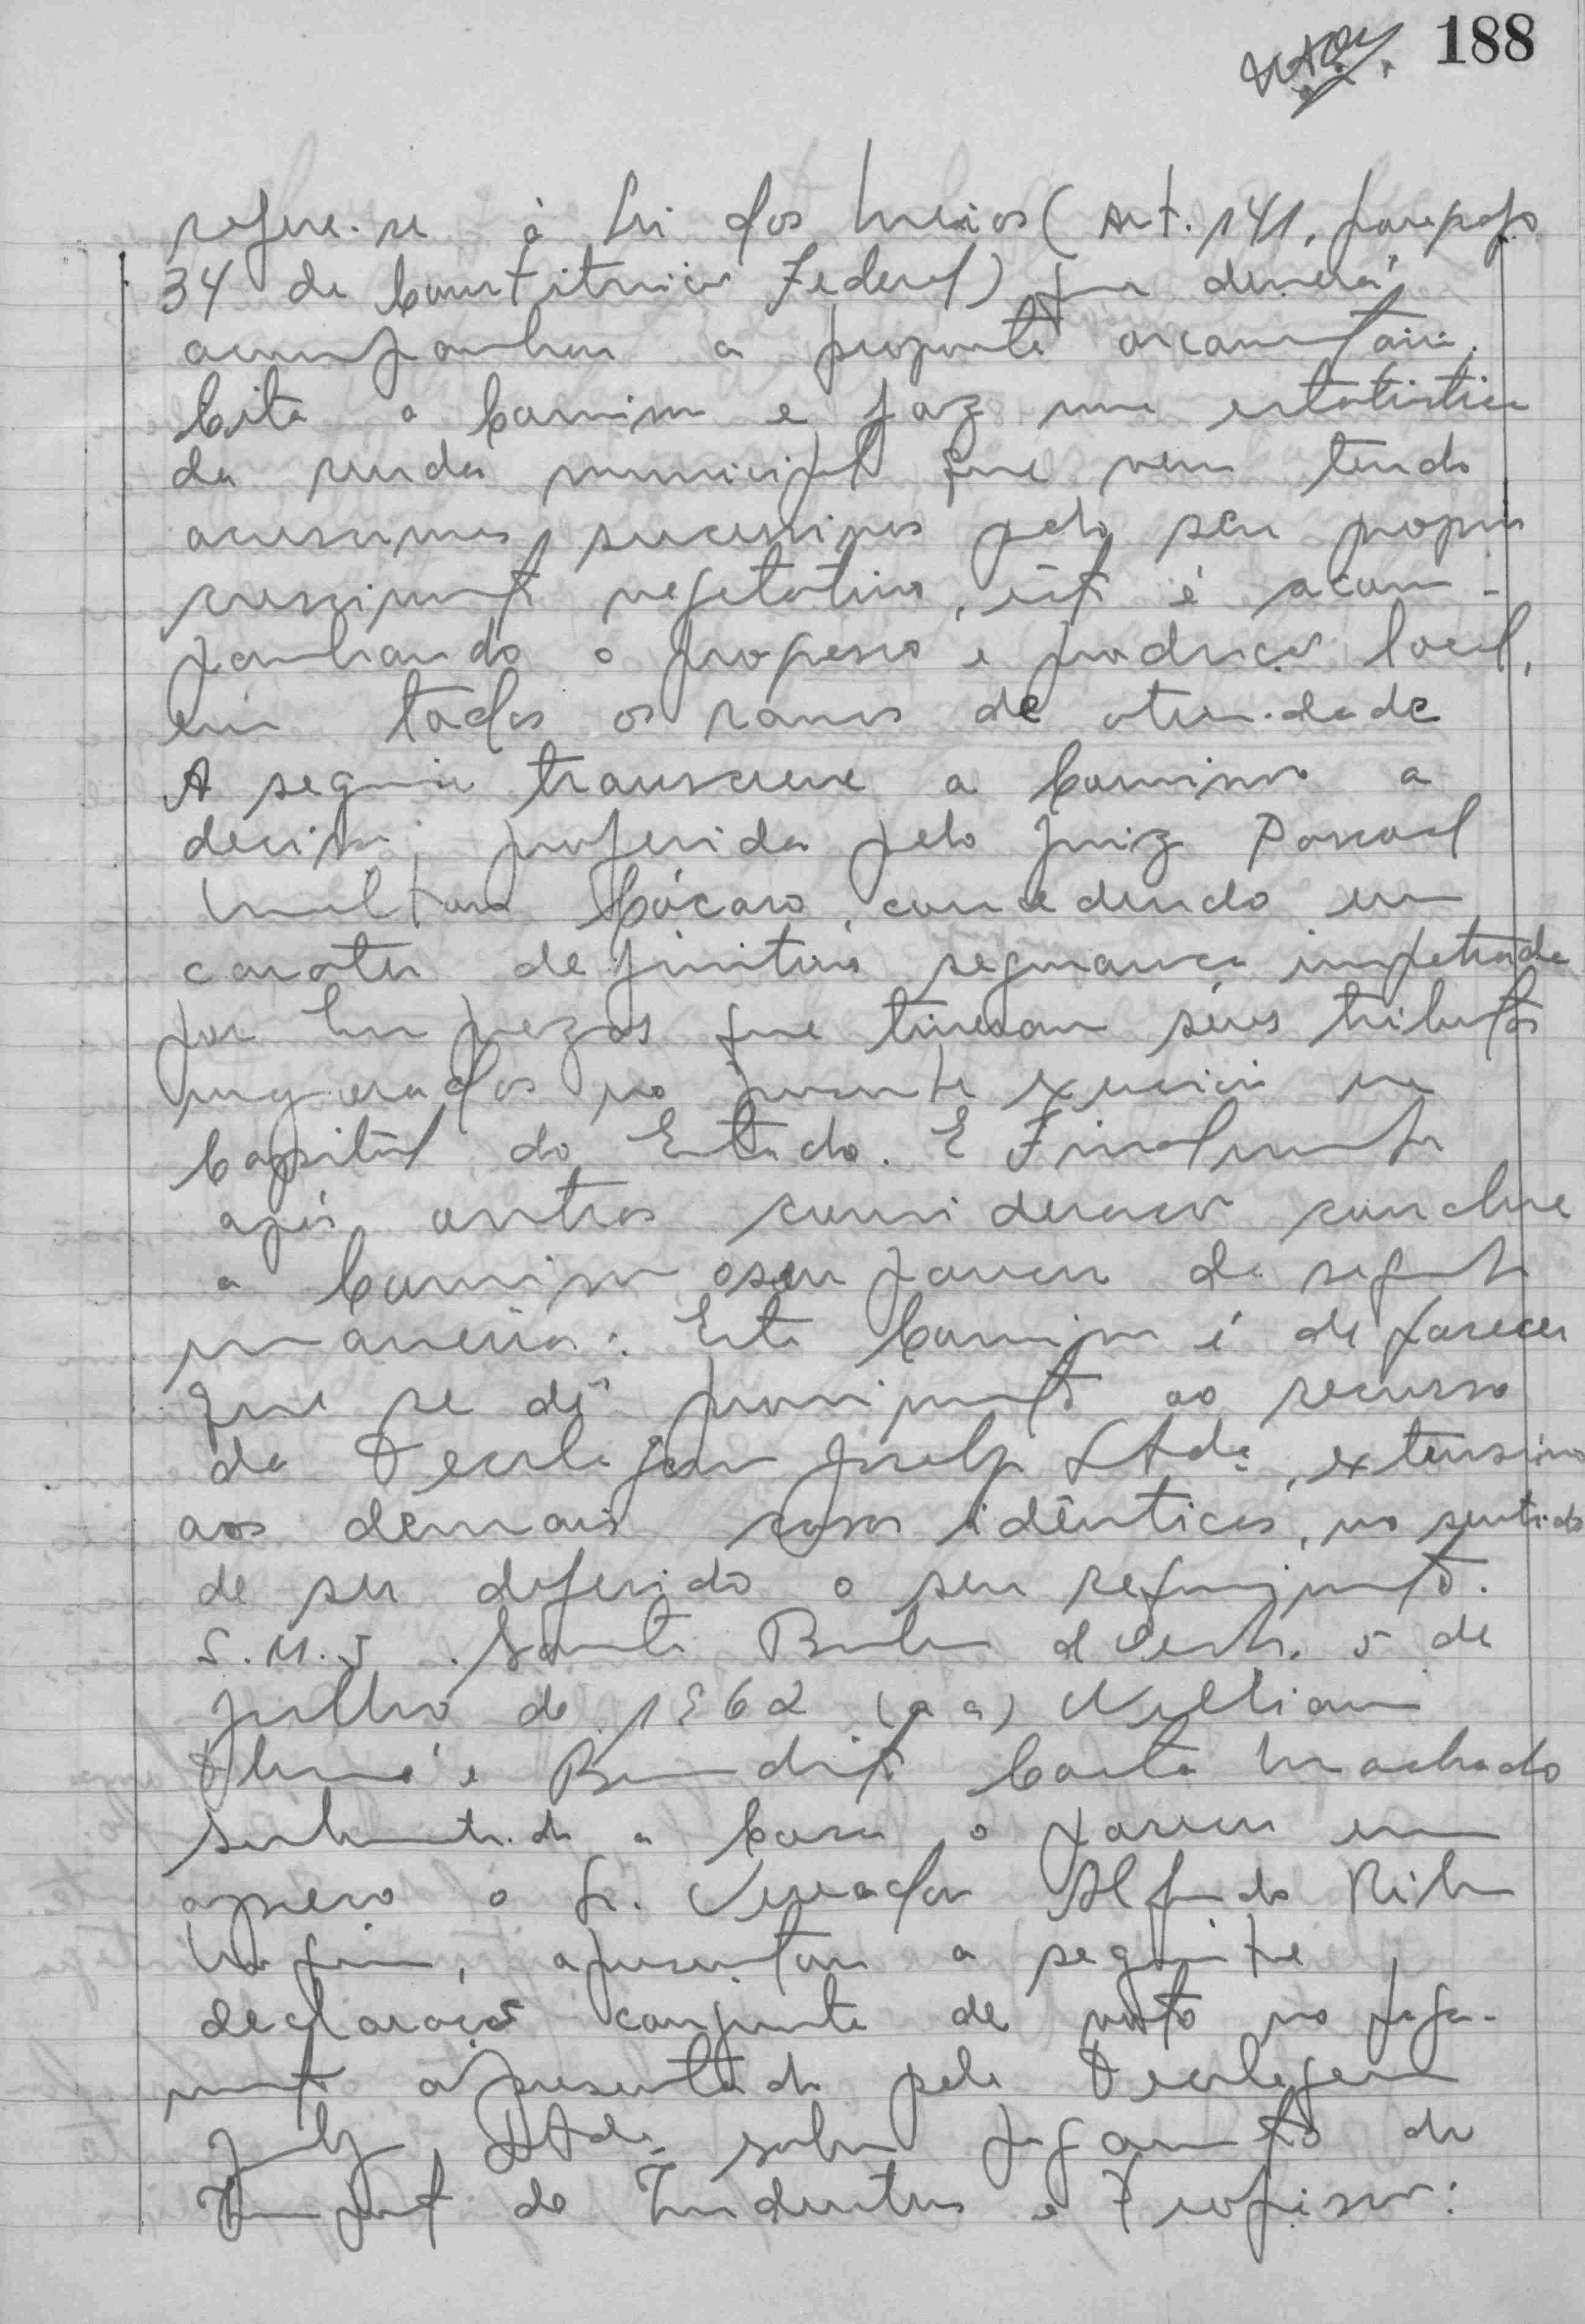 188
refere-se à Lei dos Meios (Art. 141, parágrafo
34 da Constituição Federal) que deverá
acompanhar a proposta orçamentária.
Cita a Comissão e faz uma estatística
da renda municipal que vem tendo
acrescimos sucessivos pelo seu proprio
crescimento vegetativo, isto é acom-
panhando o progresso e produção local,
em todos os ramos de atividade
A seguir transcreve a Comissão a
decisão, proferida pelo Juiz Pascoal
Miltom Cácaro, concedendo em
carater definitivo segurança impetrada
por empezas que tiveram séus tributos
majorados no presente exercicio na
Capital do Estado. E Finalmente
após outras considerações conclue
a Comissão o seu parecer da seguinte
maneira: Esta Comissão é de parecer
que se dê provimento ao recurso
da Tecelagem Ltda, extensivo
aos demais casos idênticos, no sentido
de ser deferido o seu requerimento.
S.M.J. Santa Barbara d'Oeste, 5 de
julho de 1962 (a a) William
e Benedito Costa Machado
Submetido a Casa o parecer em
apreço o Sr. Vereador Alfredo
apresentou a seguinte
declaração conjunta de voto no
apresentado pela Tecelagem
Ltda sobre pagamento do
Imposto de Industrias e Profissões: